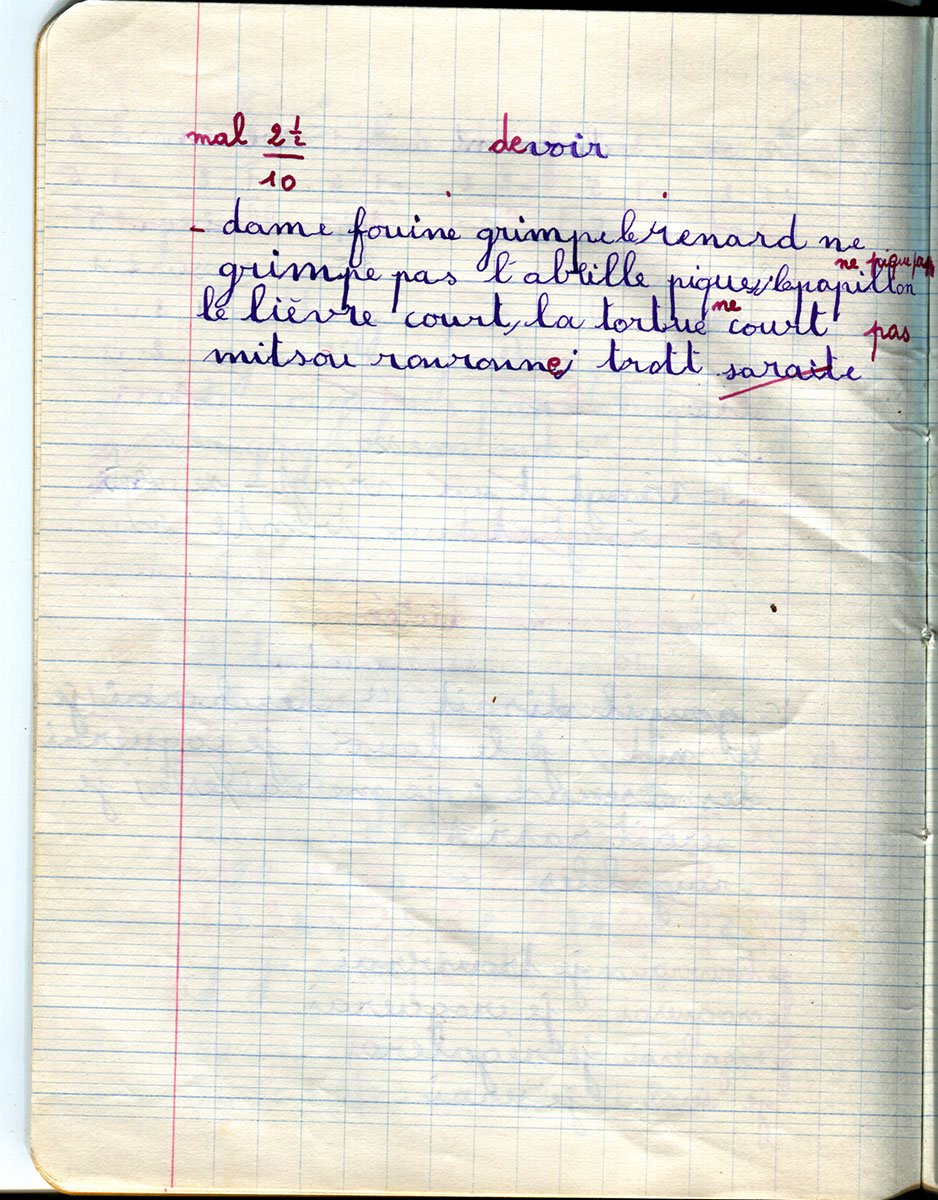 mal 2½ devoir
10
- dame fouine grimpe le renard ne
grimpe pas l'abeille pique, le papillon ne pique pas
le lièvre court, la tortue ne court pas
mitsou ronronne trott saraite